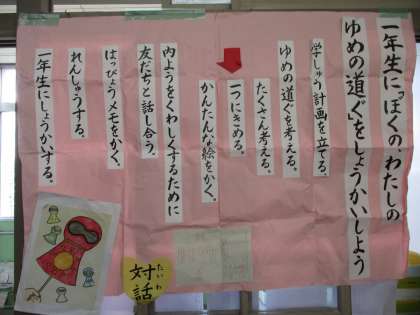 一年生に「ぼくの、わたしの
ゆめの道ぐ」をしょうかいしよう
学しゅう計画を立てる。
ゆめの道ぐを考える。
たくさん考える。
一つにきめる。
かんたんな絵をかく。
内ようをくわしくするために
友だちと話し合う。
はっぴょうメモをかく。
れんしゅうする。
一年生にしょうかいする。
たいわ
対話